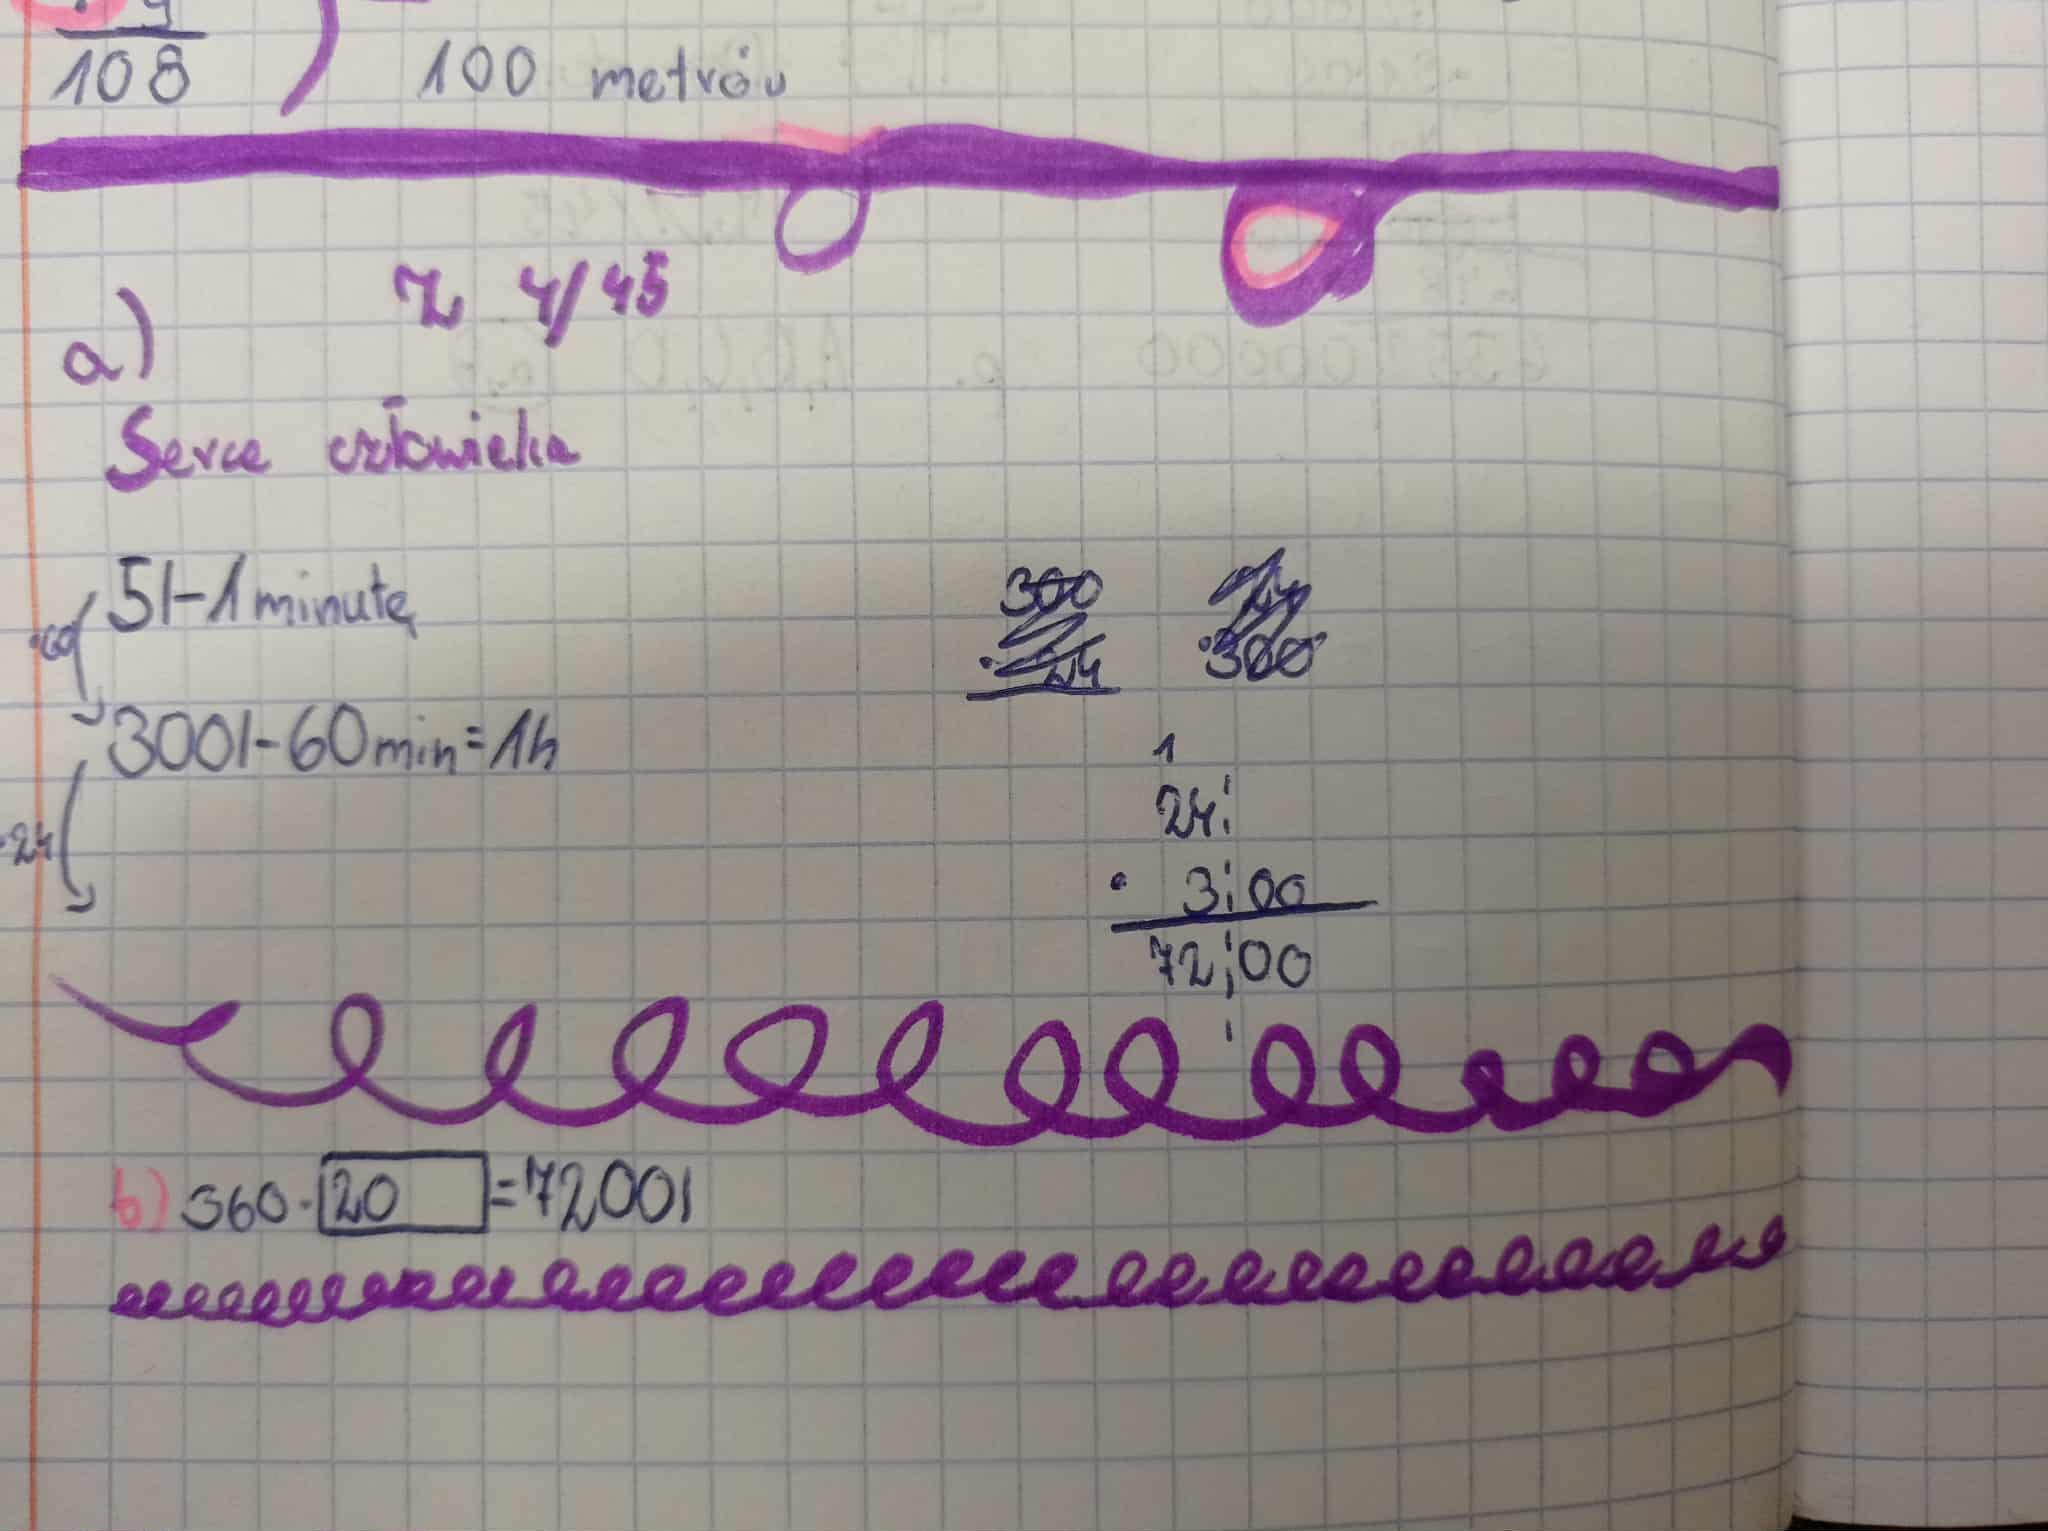 9
108
100 metrów
Z 4/45
a)
Serce człowieka
5l-1minutę
·60
300l-60min=1h
·24
1
24
· 3 00
72 00
b) 360·20=7200l